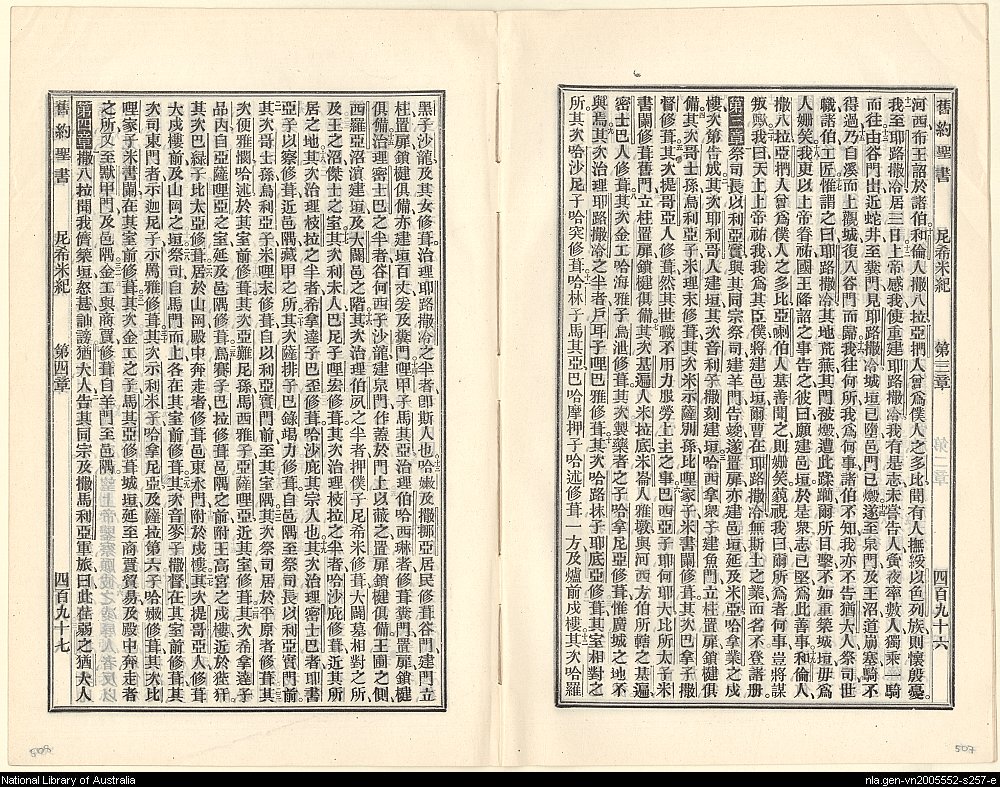 舊約聖書 尼希米紀 第三章 四百九十六
河西布王詔於諸伯和倫人撒八拉亞捫人曾為僕人之多比聞有人撫綏以色列族則懷殷憂
我至耶路撒冷居三日上帝感我使重建耶路撒冷我有是志未嘗告人夤夜率數人獨乘一騎
而往由谷門出近蛇井至糞門見耶路撒冷城垣已墮邑門已燬遂至泉門及王沼道崩塞騎不
得過乃自溪而上觀城復入谷門而歸我往何所我為何事諸伯不知我亦不告猶大人祭司世
職諸伯工匠惟謂之曰耶路撒冷其地荒蕪其門被燬遭此蹂躪爾所目擊不如重築城垣毋為
人姍笑我更以上帝眷祐國王降詔之事告之彼曰願建邑垣於是眾志已堅為此善事和倫人
撒八拉亞捫人曾為僕人之多比亞喇伯人基善聞之則姍笑藐視我曰爾所為者何事豈將謀
叛歟我曰天上上帝祐我我為其臣僕將建邑垣爾曹在耶路撒冷無斯土之業而名不登譜冊
第三章祭司長以利亞實與其同宗祭司建羊門告竣遂置扉亦建邑垣延及米亞哈拿業之戍
樓次第告成其次耶利哥人建垣其次音利子撒刻建垣哈西拿眾子建魚門立柱置扉鎖楗俱
備其次哥士孫烏利亞子米理末修葺其次米示薩別孫比哩家子米書闌修葺其次巴拿子撒
督修葺其次提哥亞人修葺然其世職不用力服勞上主之事巴西亞子耶何耶大比所太子米
書闌修葺舊門立柱置扉鎖楗俱備其次基遍人米拉底米崙人雅墩與河西方伯所轄之基遍
密士巴人修葺其次金工哈海雅子烏泄修葺其次製藥者之子哈拿尼亞修葺惟廣城之地不
與焉其次治理耶路撒冷之半者戶耳子哩巴雅修葺其次哈路抹子耶底亞修葺其室相對之
所其次哈沙尼子哈突修葺哈林子馬其亞巴哈摩押子哈述修葺一方及爐前戍樓其次哈羅
黑子沙龍及其女修葺治理耶路撒冷之半者即斯人也哈嫩及撒挪亞居民修葺谷門建門立
柱置扉鎖楗俱備亦建垣百丈爰及糞門哩甲子馬其亞治理伯哈西琳者修葺糞門置扉鎖楗
俱備治理密士巴之半者谷何西子沙龍建泉門作蓋於門上以蔽之置扉鎖楗俱備王囿之側
西羅亞沼濱建垣及大闢邑之階其次治理伯夙之半者押僕子尼希米修葺大闢墓相對之所
及王之沼傑士之室其次利未人巴尼子哩宏修葺其次治理枝拉之半者哈沙庇修葺近其所
居之地其次治理枝拉之半者希拿達子巴至修葺哈沙庇其宗人也其次治理密士巴者耶書
亞子以察修葺近邑隅藏甲之所其次薩排子巴錄竭力修葺自邑隅至祭司長以利亞實門前
其次哥士孫烏利亞子米哩末修葺自以利亞實門前至其室隅其次祭司居於平原者修葺其
次便雅憫哈述於其室前修葺其次亞難尼孫馬西雅子亞薩哩亞近其室修葺其次希拿達子
品內自亞薩哩亞之室延及邑隅修葺烏賽子巴拉修葺邑隅之前附王高宮之戍樓近於狴犴
其次巴綠子比太亞修葺居於山岡殿中奔走者修葺邑東水門附於戍樓其次提哥亞人修葺
大戍樓前及山岡之垣祭司自馬門而上各在其室前修葺其次音麥子撒督在其室前修葺其
次司東門者示迦尼子示馬雅修葺其次示利米子哈拿尼亞及薩拉第六子哈嫩修葺其次比
哩家子米書闌在其室前修葺其次金工之子馬其亞修葺城垣延至商賈貿易及殿中奔走者
之所又至獄甲門及邑隅金工與商賈修葺自羊門至邑隅
第四章撒八拉聞我儕築垣怒甚訕謗猶大人告其同宗及撒馬利亞軍旅曰此荏弱之猶大人
舊約聖書 尼希米紀 第四章 四百九十七
508
507
National Library of Australia
nla.gen-vn2005552-s257-e